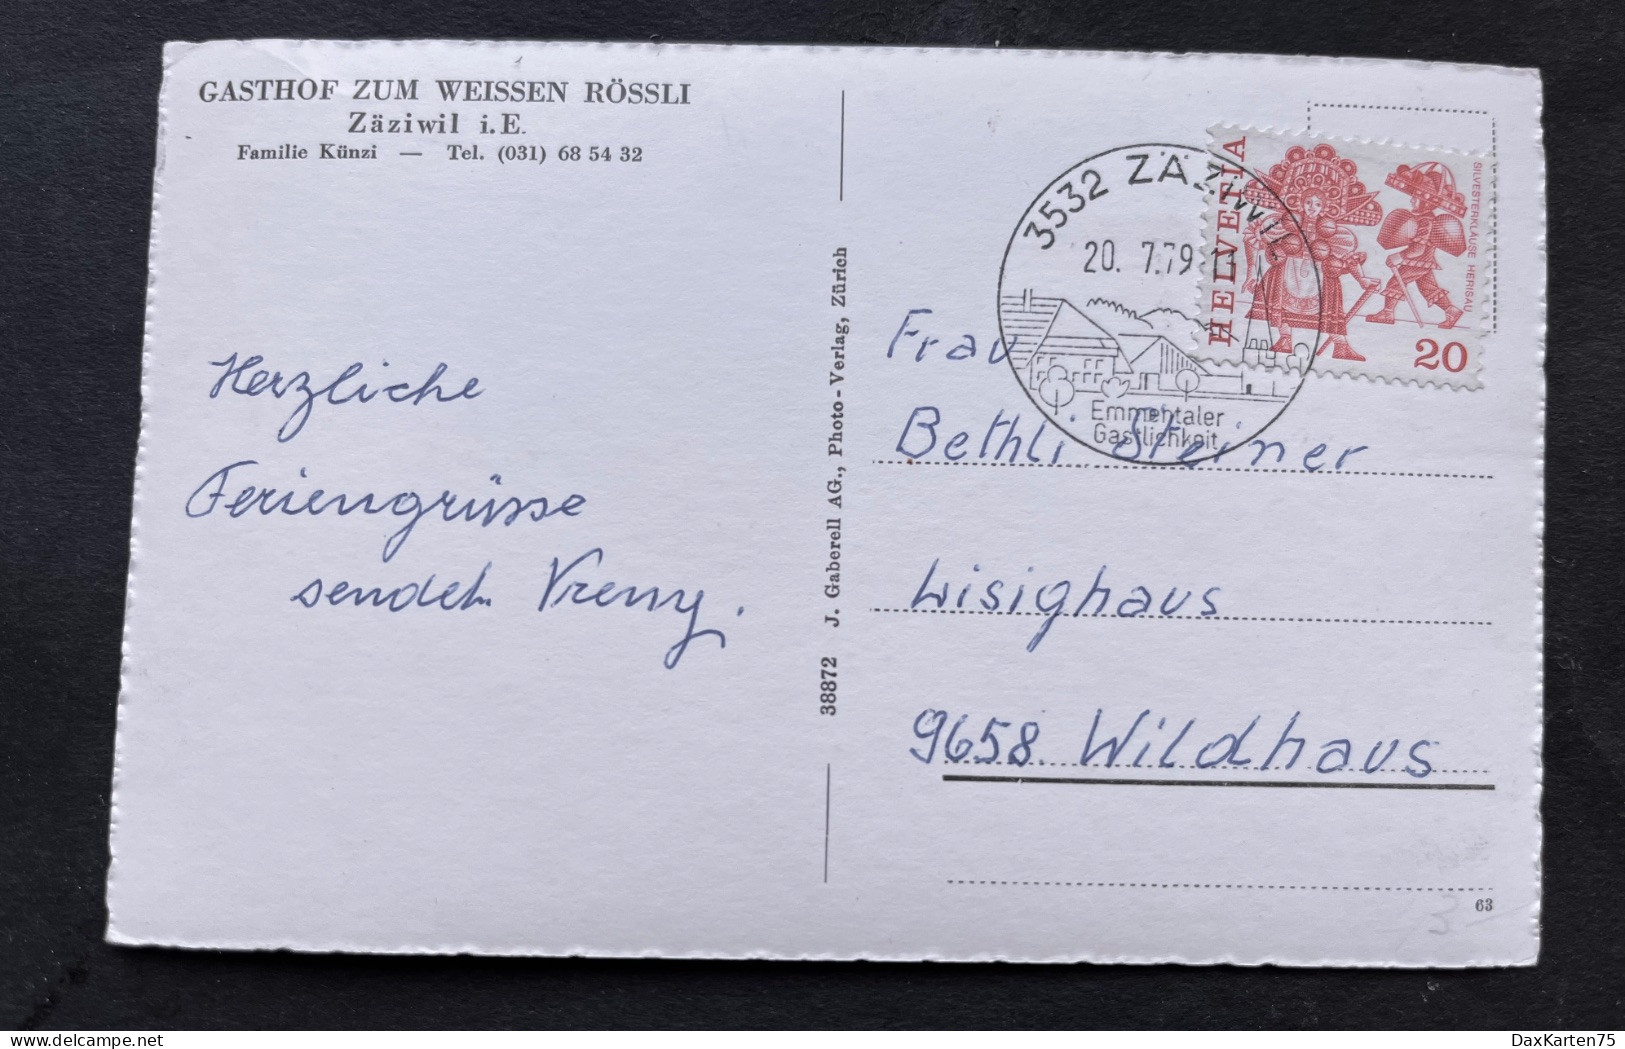 GASTHOF ZUM WEISSEN RÖSSLI
Zäziwil i. E.
Familie Künzi — Tel. (031) 68 54 32
Herzliche
Feriengrüsse
sendet Vreny.
38872 J. Gaberell AG., Photo-Verlag, Zürich
3532 ZÄZIWIL
20. 7.79-11
Emmentaler
Gastlichkeit
HELVETIA
SILVESTERKLÄUSE HERISAU
20
Frau
Bethli Steiner
Lisighaus
9658 Wildhaus
63
DaxKarten75